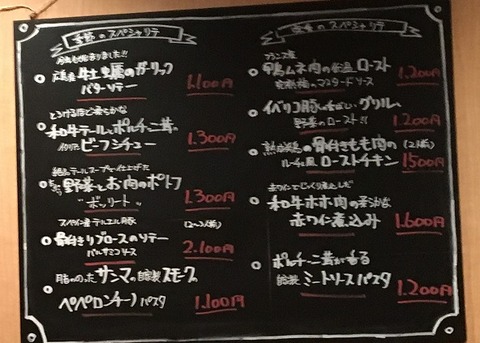 季節のスペシャリテ
広島産牡蠣のガーリック
バターソテー
1,100円
とろける舌ざわり
和牛テールとポルチーニ茸の
ビーフシチュー
1,300円
野菜とお肉のポトフ
"ボッリート"
1,300円
スペイン産
(2〜3人前)
骨付きリブロースのソテー
バルサミコソース
2,100円
脂ののったサンマの自家製スモークの
ペペロンチーノパスタ
1,100円
スペシャリテ
フランス産
鴨ムネ肉の低温ロースト
マスタードソース
1,200円
イベリコ豚の香ばしいグリル
野菜のロースト!!
1,200円
骨付きもも肉の
(2人前)
ローストチキン
1500円
赤ワインでじっくり煮込んだ
和牛ホホ肉の柔らか
赤ワイン煮込み
1,600円
ポルチーニ茸が香る
自家製ミートソースパスタ
1,200円